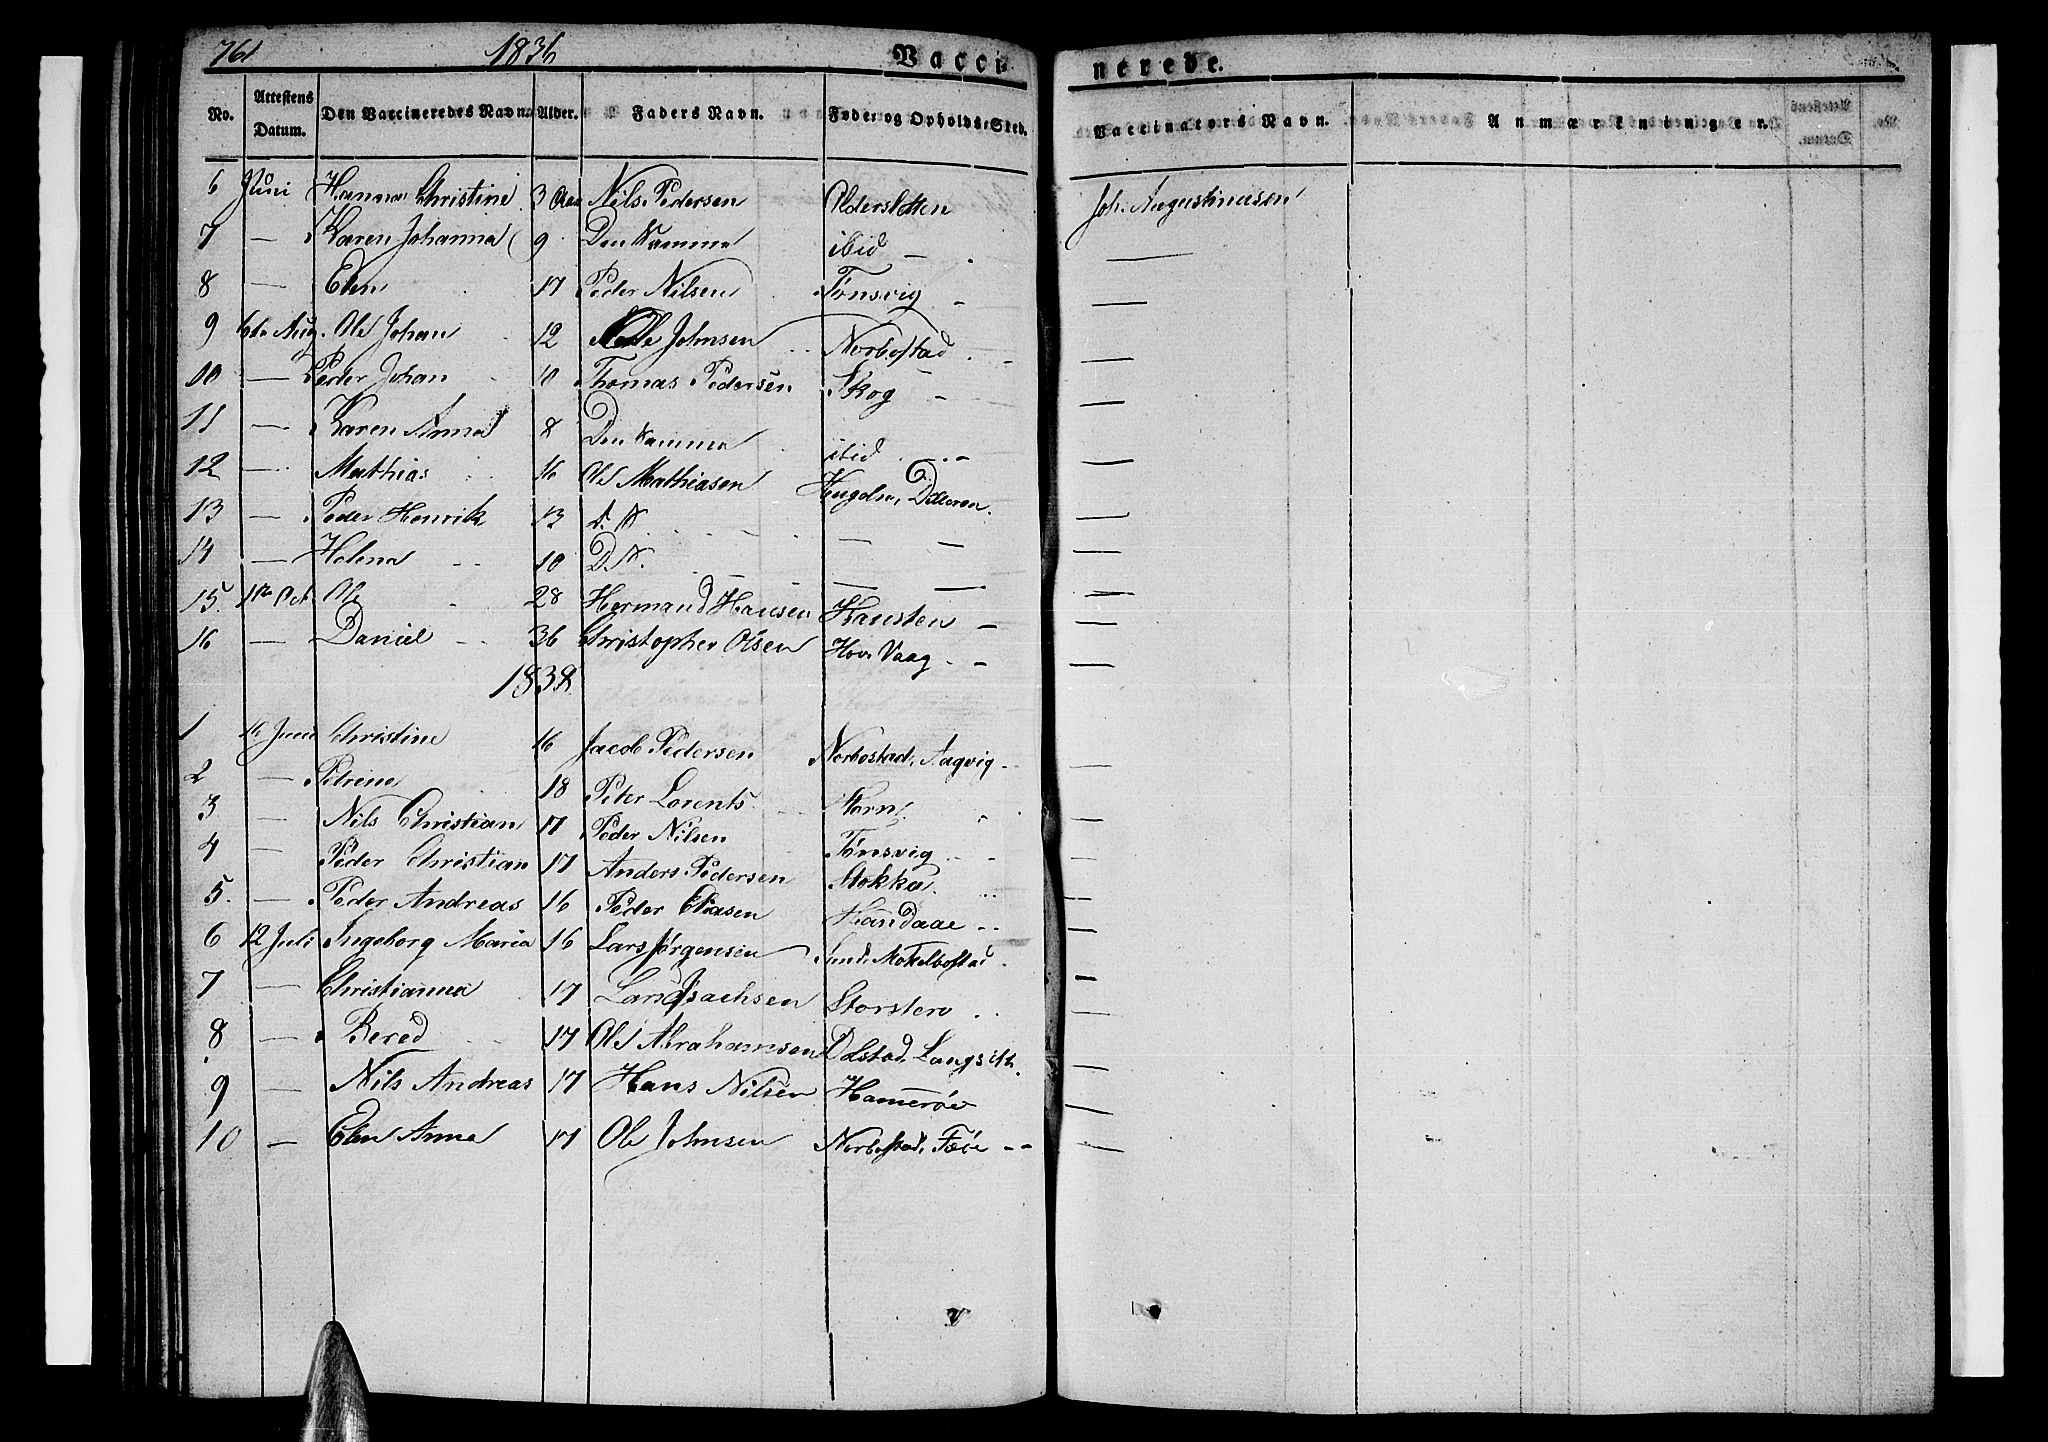 761 1836 Vacci- nerede.
No. Attestens Datum. Den Vaccineredes Navn. Alder. Faders Navn. Føde- og Opholds-Sted. Vaccinators Navn. Anmærkninger.
6 Juni Hanna Christine 3 Aar Nils Pedersen Alderslotten Joh. Augustinusen
7 — Karen Johanna 9 Den Samme ibid — —
8 — Elen 17 Peder Nilsen Tønsvig — —
9 6te Aug. Ole Johan 12 Ole Johnsen Norbostad — —
10 — Peder Johan 10 Thomas Pedersen Skog — —
11 — Karen Anna 8 Den Samme ibid — —
12 — Mathias 16 Ole Mathiasen —
13 — Peder Henrik 13 D. N. — — —
14 — Helena 10 D. N. — — —
15. 1te Oct. Ole 28 Hermand Hansen Kansten — —
16 — Daniel 36 Christopher Olsen Vaag — —
1838
1 16 Juni Christine 16 Jacob Pedersen Norbostad, Aagvig —
2 — Petrine 18 Peter Lorents —
3 — Nils Christian 17 Peder Nilsen Tønsvig —
4 — Peder Christian 17 Anders Pedersen Stokka —
5. — Peder Andreas 16 Peder Eliasen Kandaae —
6 12 Juli Ingeborg Maria 16 Lars Jørgensen Mokelbostad —
7 — Christianna 17 Storsten —
8 — Bered 17 Ole Abrahamsen —
9 — Nils Andreas 17 Hans Nilsen Hamerøe —
10 — Elen Anna 17 Ole Johnsen Norbostad, Fæøe —